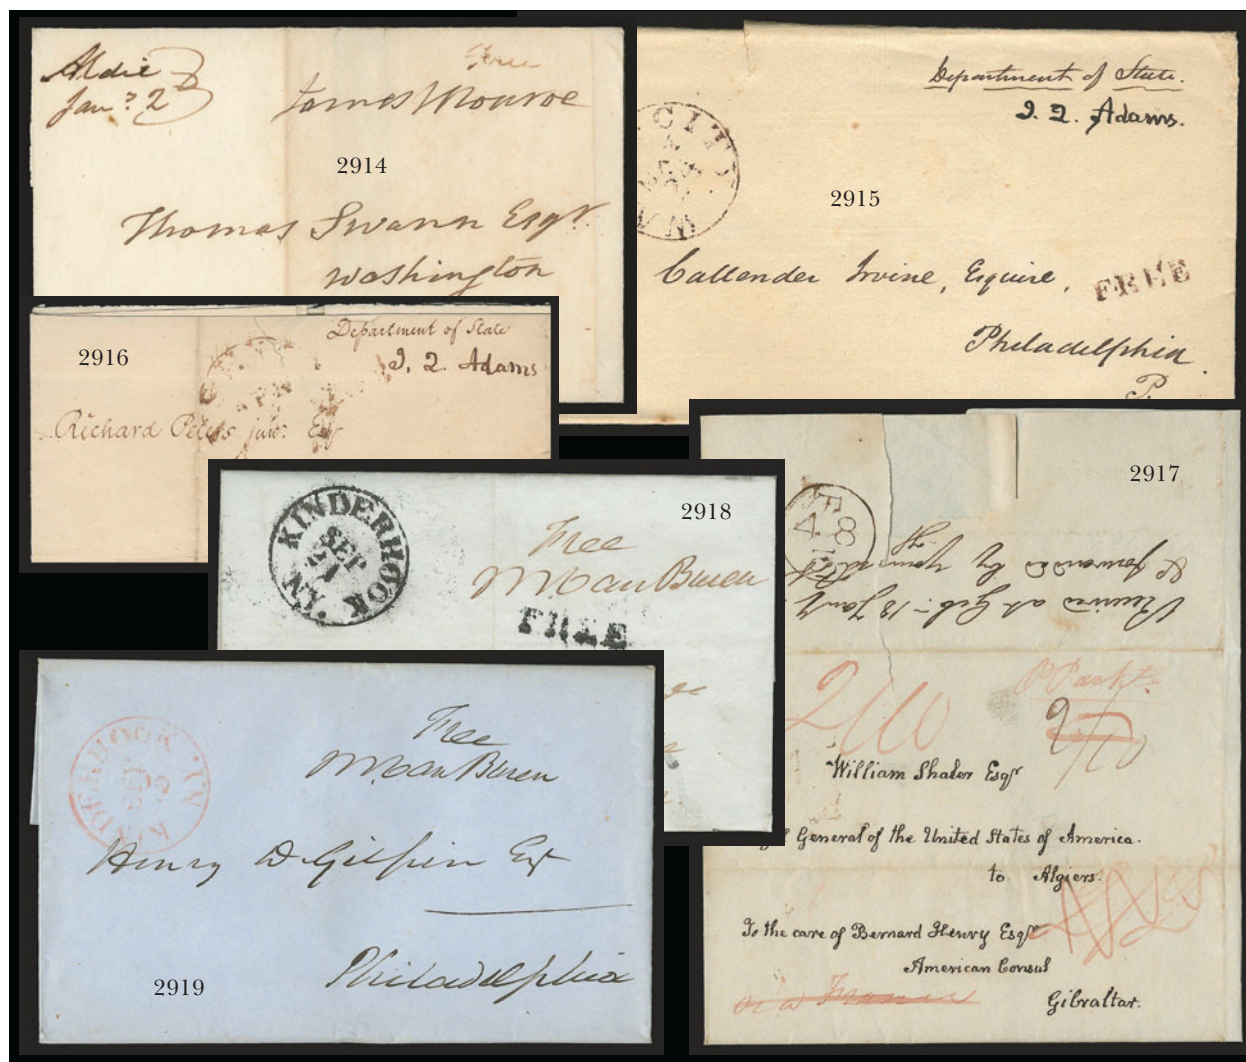 Aldie
Jany. 2
Free
James Monroe
2914
Thomas Swann Esqr.
Washington
Department of State.
J. Q. Adams.
CITY
2915
Callender Irvine, Esquire,
FREE
Philadelphia
P.
2916
Department of State
J. Q. Adams
Richard Peters junr. Esq
2917
48
Received at Gib: 18 Jany
& forwarded by
2/10
2/10
William Shaler Esqr
General of the United States of America.
to Algiers.
To the care of Bernard Henry Esqr
American Consul
Gibraltar.
2918
KINDERHOOK N.Y.
SEP
21
Free
MVan Buren
FREE
KINDERHOOK N.Y.
SEP
Free
MVan Buren
Henry D. Gilpin Esq
Philadelphia
2919